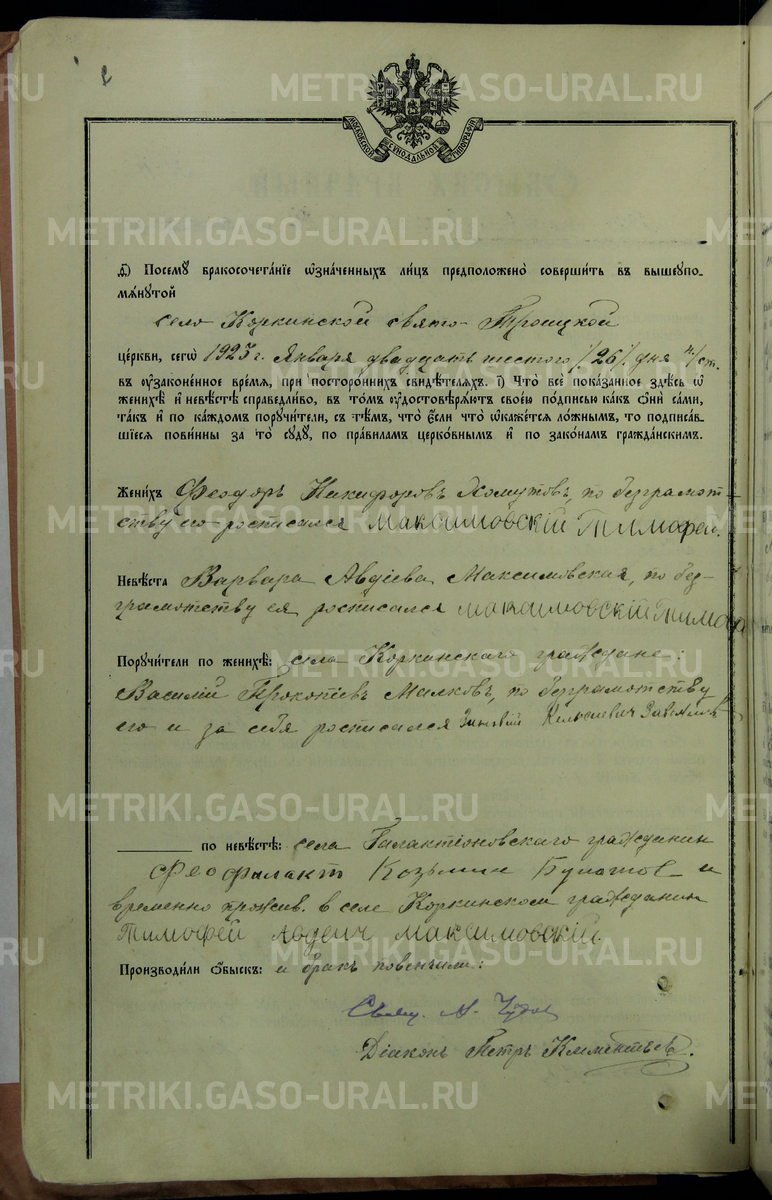 2
METRIKI.GASO-URAL.RU
МОСКОВСКОЙ СѴНОДАЛЬНОЙ ТИПОГРАФІИ
ѕ҃) Посемꙋ бракосочета́нїе ѡзна́ченныхъ ли́цъ предположено̀ соверши́ть въ вышеупо-
мѧ́нутой
село Коркинской свято-Троицкой
це́ркви, сегѡ̀ 1923 г. Января двадцать шестого /26/ дня н/ст.
въ ᲂу҆зако́ненное вре́мѧ, при посторо́ннихъ свидѣ́телѧхъ. з҃) Что̀ всѐ пока́занное здѣ́сь ѡ҆
женихѣ̀ и҆ невѣ́стѣ справедли́во, въ то́мъ ᲂу҆достовѣрѧ́ютъ своє́ю по́дписью ка́къ ѻ҆ни́ са́ми,
та́къ и҆ по ка́ждомъ поручи́тели, съ тѣ́мъ, что̀ є҆́сли что̀ ѡ҆ка́жетсѧ ло́жнымъ, то подписа́в-
шїесѧ пови́нны за то̀ судꙋ̀, по пра́виламъ церко́внымъ и҆ по зако́намъ гражда́нскимъ.
Жени́хъ Феодоръ Никифоровъ Хомутовъ, по безграмот-
ству его росписался Максимовскій Тимофей.
Невѣ́ста Варвара Авдіева Максимовская, по без-
грамотству ея росписался Максимовскій Тимофей
Поручи́тели по женихѣ̀: села Коркинскаго граждане:
Василій Прокопіевъ Малковъ, по безграмотству
его и за себя росписался Зиновій
по невѣ́стѣ: села Галактіоновскаго гражданин
Феофилакт Козьмин Булатов и
временно прожив. в селе Коркинском гражданин
Тимофей Авдеич Максимовскій.
Производи́ли ѻ҆́быскъ: и бракъ повенчали:
Свящ. А. Чудов
Діаконъ Петръ Климентьев.